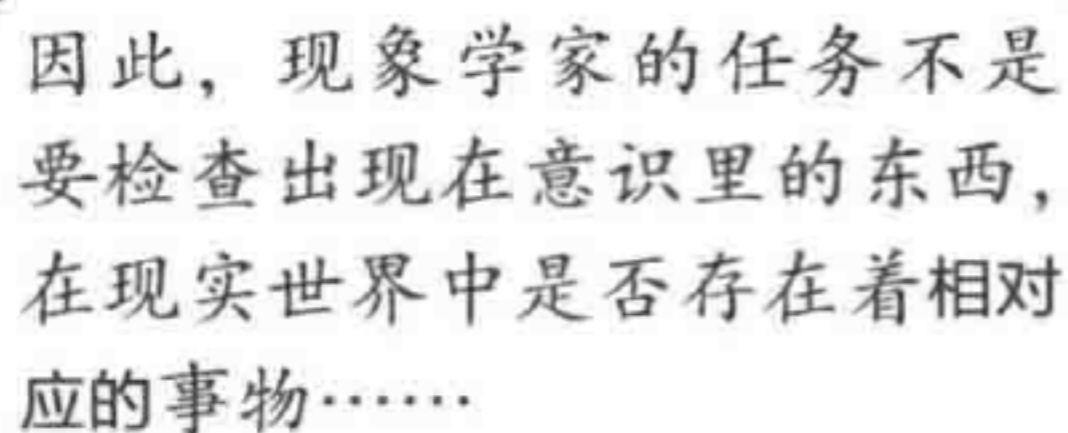 因此，现象学家的任务不是
要检查出现在意识里的东西，
在现实世界中是否存在着相对
应的事物……